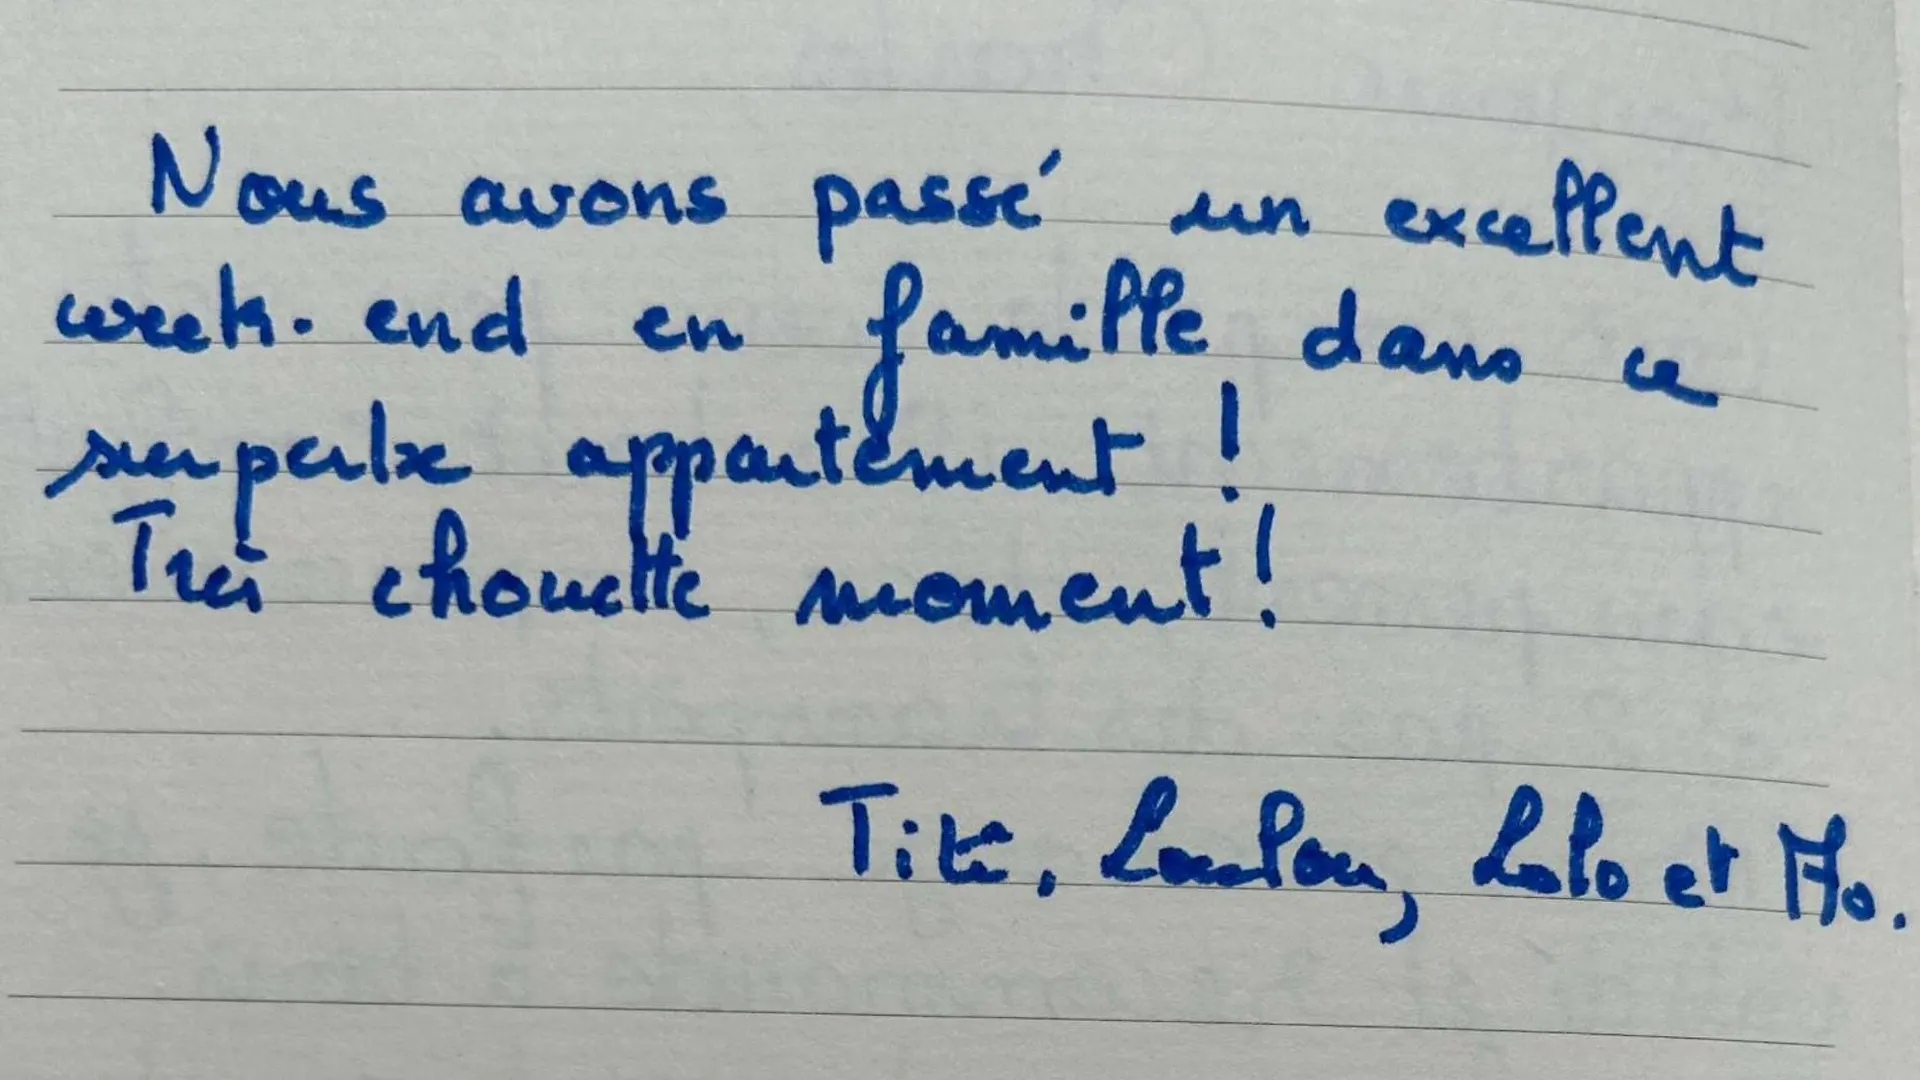 Nous avons passé un excellent
week-end en famille dans ce
superbe appartement !
Très chouette moment !
Tité, Loulou, Lolo et Mo.